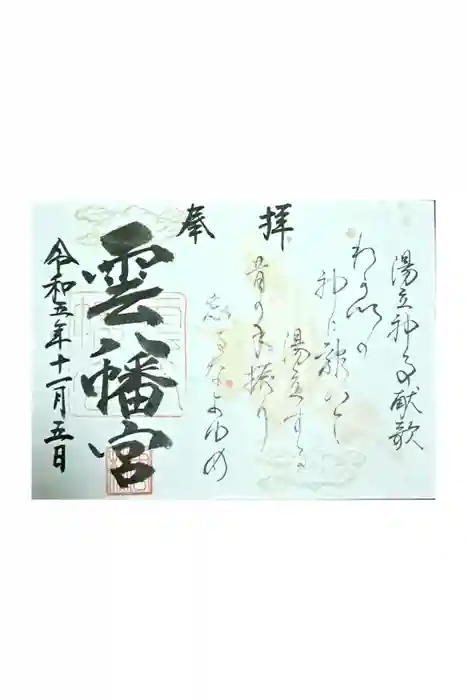 湯立神事献歌
の
神に
湯立する
昔の手振り
忘るなよゆめ
奉拝
雲八幡宮
令和五年十一月五日